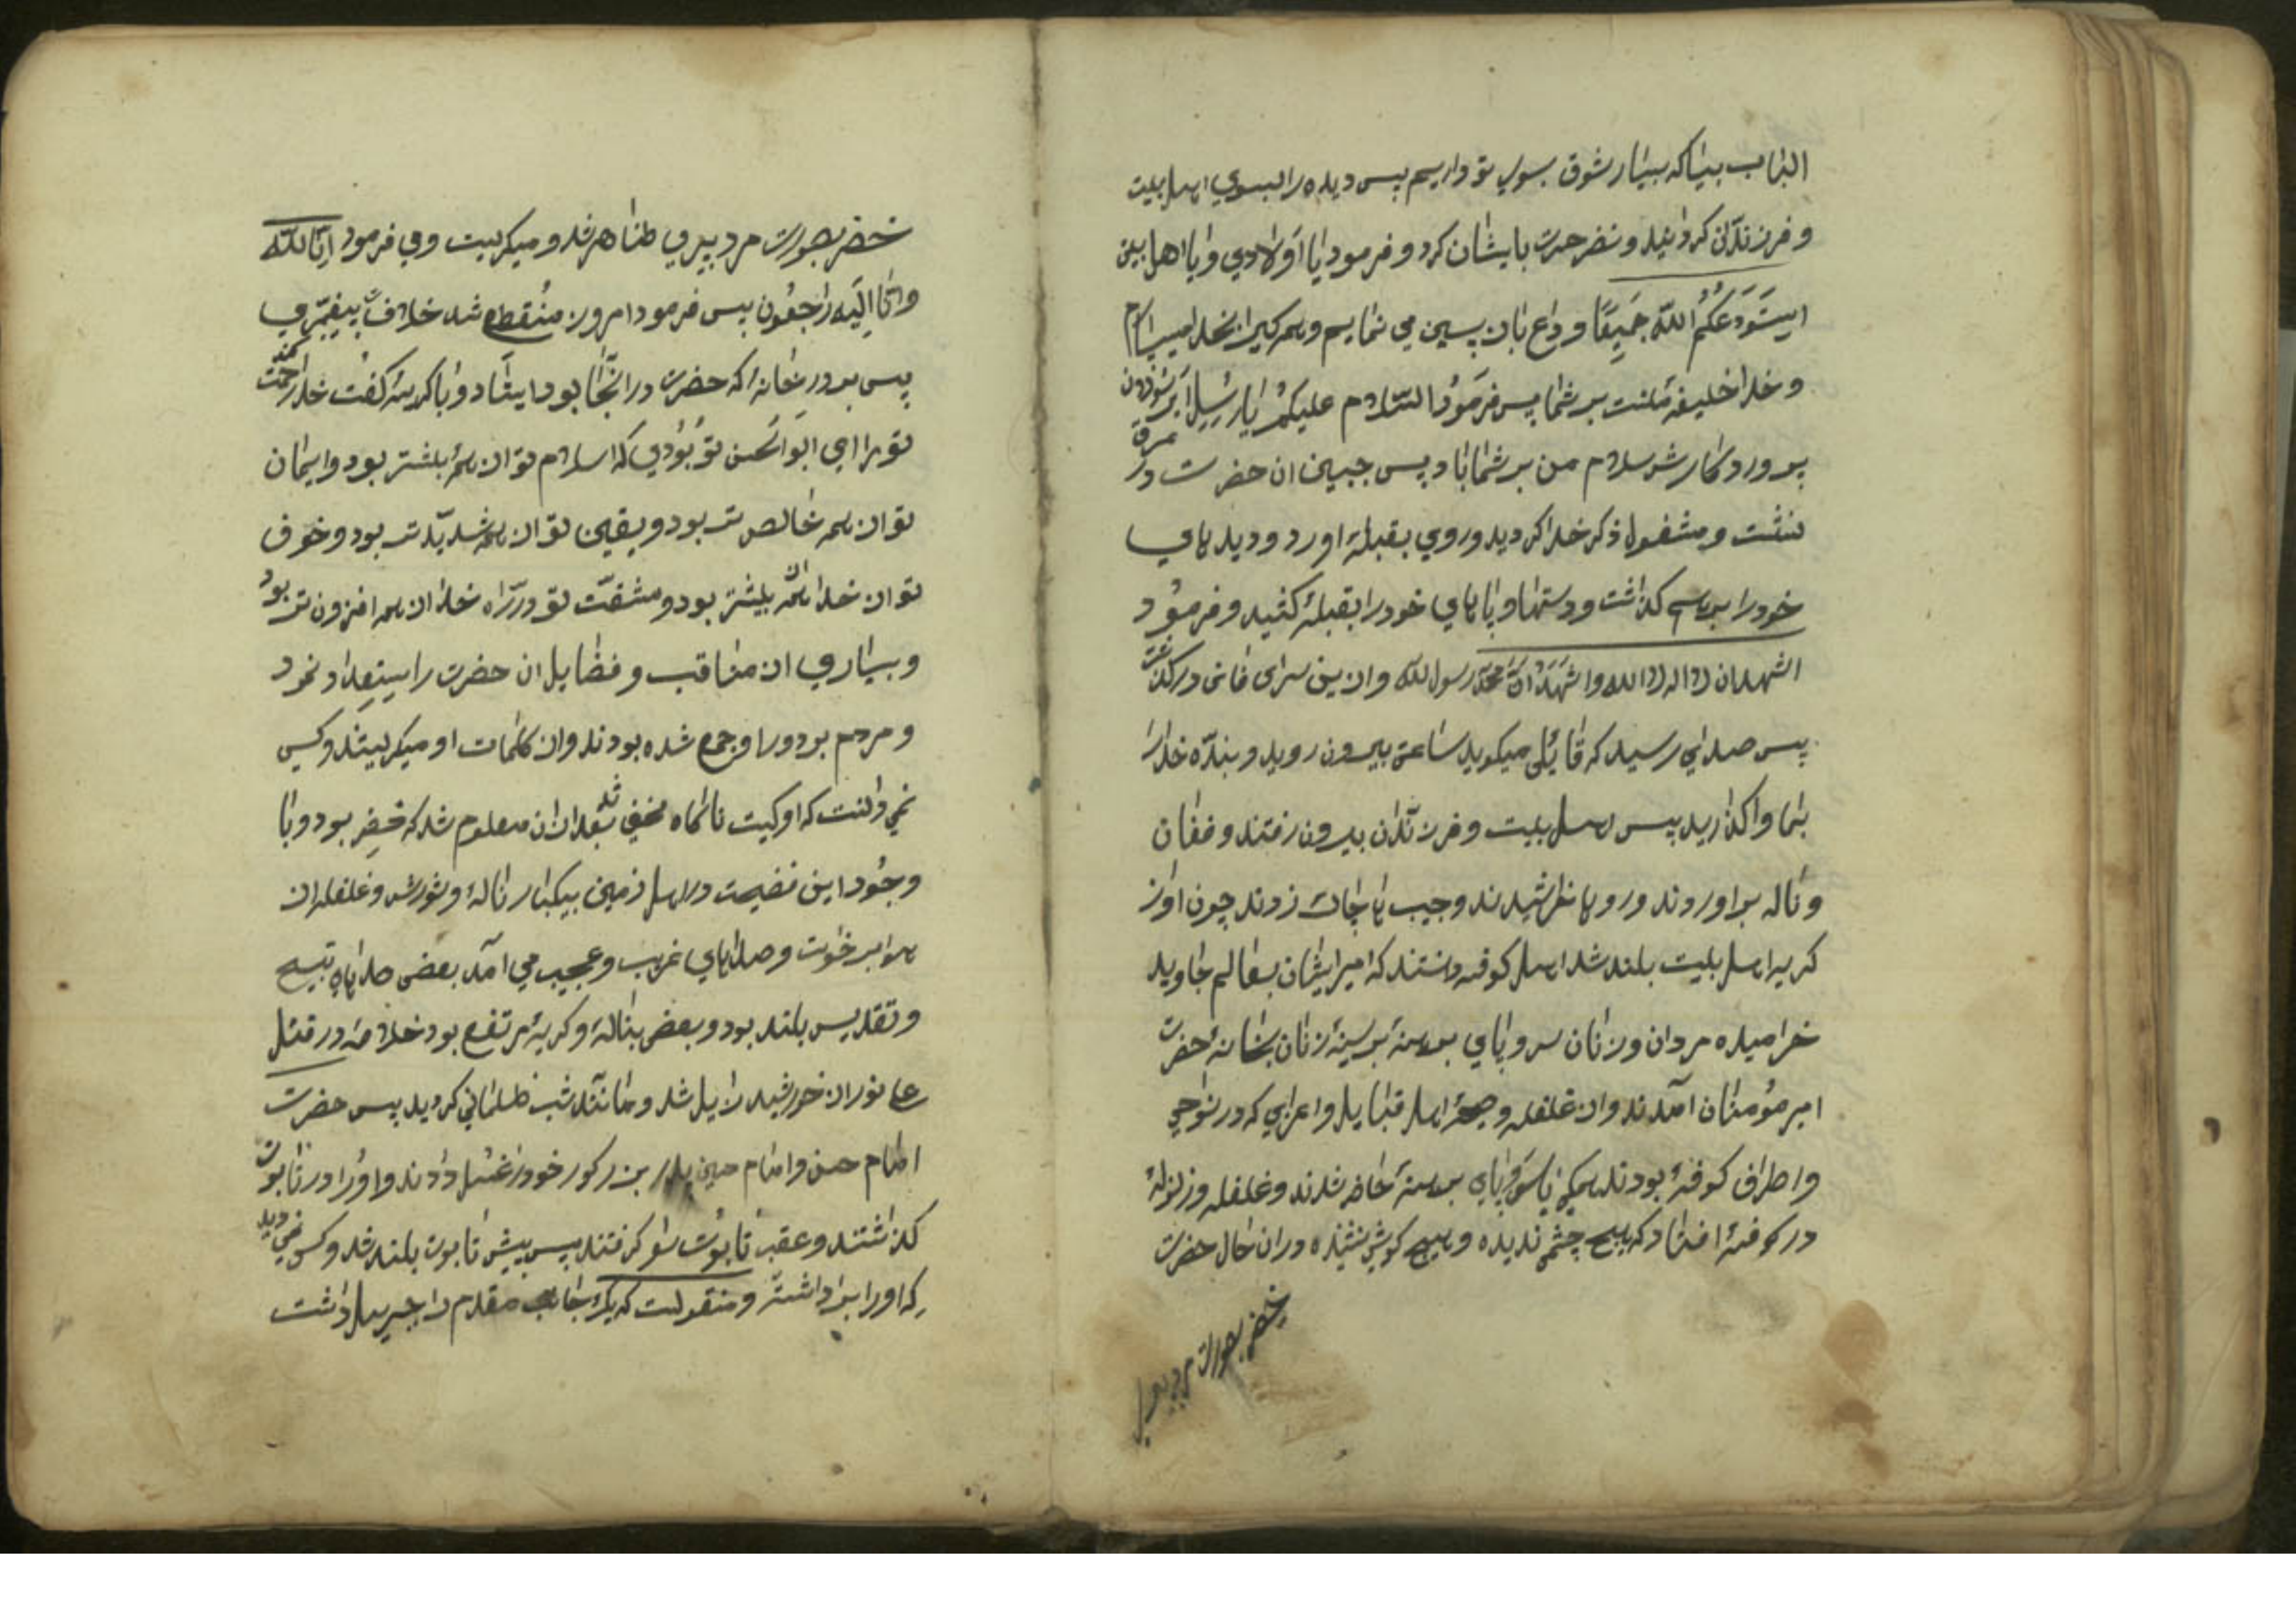 بیا که بسیار شوق بسوی تو داریم پس دیده را بسوی اهل بیت
و فرزندان کردانید و نضر حسرت بایشان کرد و فرمود یا اولادی و یا اهل بیتی
استودعکم الله جمیعا وداع بازپسین می نمایم و همه کیرا بخدا میسپارم
و خدا خلیفهٔ منست بر شما پس فرمود السلام علیکم یا رسل
پروردکار سلام من بر شما باد پس جبین ان حضرت در عرق
نشست و مشغول ذکر خدا کردید و روی بقبله اورد و دیدهای
خود را برهم کذاشت و دستها و پاهای خود را بقبله کشید و فرمود
اشهد ان لا اله الا الله و اشهد ان محمد رسول الله و ازین سرای فانی درکذشت
پس صدائی رسید که قایلی میکوید ساعتی بیرون روید و بنده خدا را
بما واکذارید پس اهل بیت و فرزندان بیرون رفتند و فغان
و ناله براوردند و رویها خراشیدند و جیب ها چاک زدند چون اواز
کریه اهل بیت بلند شد اهل کوفه دانستند که امیر ایشان بعالم جاوید
خرامیده مردان و زنان سر و پای برهنه بر سینه زنان بخانهٔ حضرت
امیر مؤمنان آمدند و از غلغله و صیحهٔ اهل قبایل و اعرابی که در نواحی
و اطراف کوفه بودند همکی با سر و پای برهنه حاضر شدند و غلغله و زلزلهٔ
در کوفه افتاد که هیچ چشم ندیده و هیچ کوش نشنیده در ان حال حضرت
خضر بصورت مرد پیری
خضر بصورت مرد پیری ظاهر شد و میکریست و می فرمود انا لله
و انا الیه راجعون پس فرمود امروز منقطع شد خلافت پیغمبری
پس بر در خانهٔ که حضرت در انجا بود ایستاد و با کریه کفت خدا رحمت کند
تو را ای ابوالحسن تو بودی که اسلام تو از همه بیشتر بود و ایمان
تو از همه خالص تر بود و یقین تو از همه شدیدتر بود و خوف
تو از خدا از همه بیشتر بود و مشقت تو در راه خدا از همه افزون تر بود
و بسیاری از مناقب و فضایل ان حضرت را استعداد نمود
و مردم بر دور او جمع شده بودند و از کلمات او میکریستند و کسی
نمی دانست که او کیست ناکاه مخفی شد بعد از ان معلوم شد که خضر بود و با
وجود این مصیبت در اهل زمین بیکبار ناله و شورش و غلغله از
هوا برخواست و صداهای غریب و عجیب می آمد بعضی صداهای تسبیح
و تقدیس بلند بود و بعضی بناله و کریه مرتفع بود خلاصه در قتل
علی نور از خورشید زایل شد و مانند شب ظلمانی کردید پس حضرت
امام حسن و امام حسین پدر بزرکوار خود را غسل دادند و او را در تابوت
کذاشتند و عقب تابوت را کرفتند پس پیش تابوت بلند شد و کسی نمی دید
که او را برداشته و منقولست که یک جانب مقدم را جبرییل داشت